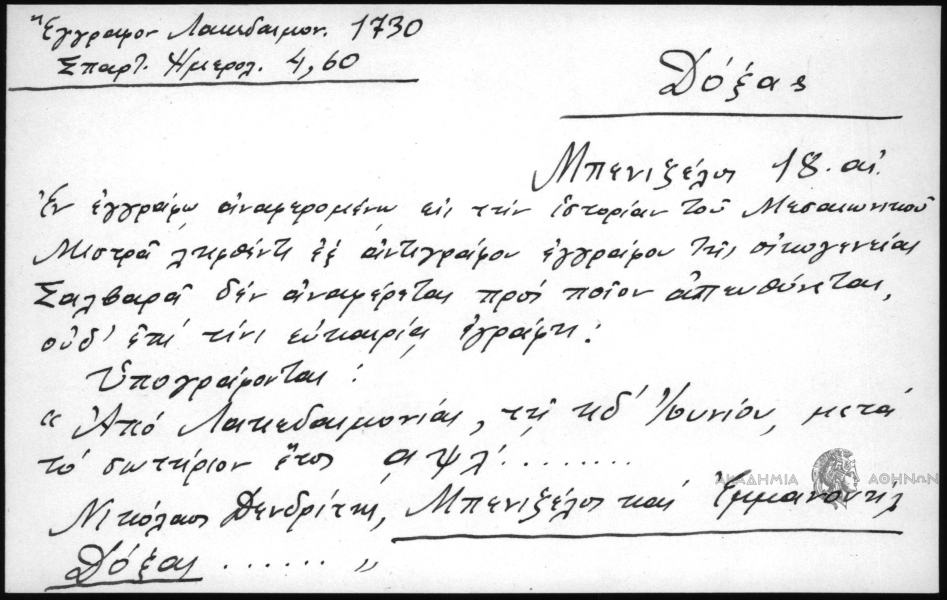 Ἔγγραφον Λακεδαιμον. 1730
Σπαρτ. Ημερολ. 4, 60
Δόξας
Μπενιζέλος 18. αἰ.
Ἐν ἐγγράφῳ ἀναφερομένῳ εἰς τὴν ἱστορίαν τοῦ Μεσαιωνικοῦ
Μιστρᾶ ληφθέντι ἐξ ἀντιγράφου ἐγγράφου τῆς οἰκογενείας
Σαλβαρᾶ δέν ἀναφέρεται πρός ποῖον ἀπευθύνεται,
οὐδ' ἐπί τίνι εὐκαιρίᾳ ἐγράφη:
Ὑπογράφονται:
"Ἀπό Λακεδαιμονίας, τῇ κδ' Ἰουνίου, μετά
τό σωτήριον ἔτος αψλ'........
ΑΚΑΔΗΜΙΑ ΑΘΗΝΩΝ
Νικόλαος Δενδρίτης, Μπενιζέλος καί Ἐμμανουήλ
Δόξας ...... "